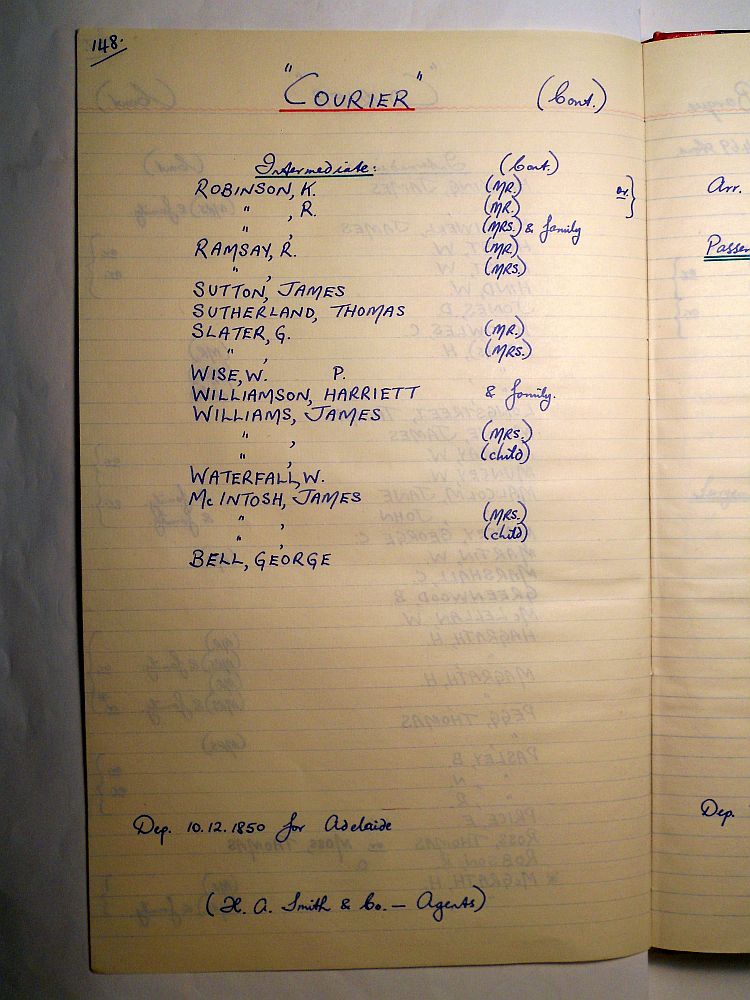 148.
"COURIER" (Cont.)
Intermediate: (Cont.)
ROBINSON, K. (MR.) or. }
" , R. (MR.)
" , (MRS.) & family
RAMSAY, R. (MR)
" , (MRS.)
SUTTON, JAMES
SUTHERLAND, THOMAS
SLATER, G. (MR.)
" , (MRS.)
WISE, W. P.
WILLIAMSON, HARRIETT & family.
WILLIAMS, JAMES
" , (MRS.)
" , (child)
WATERFALL, W.
McINTOSH, JAMES
" , (MRS.)
" , (child)
BELL, GEORGE
Dep. 10.12.1850 for Adelaide
(H. A. Smith & Co. — Agents)
Arr.
Passen
Dep.